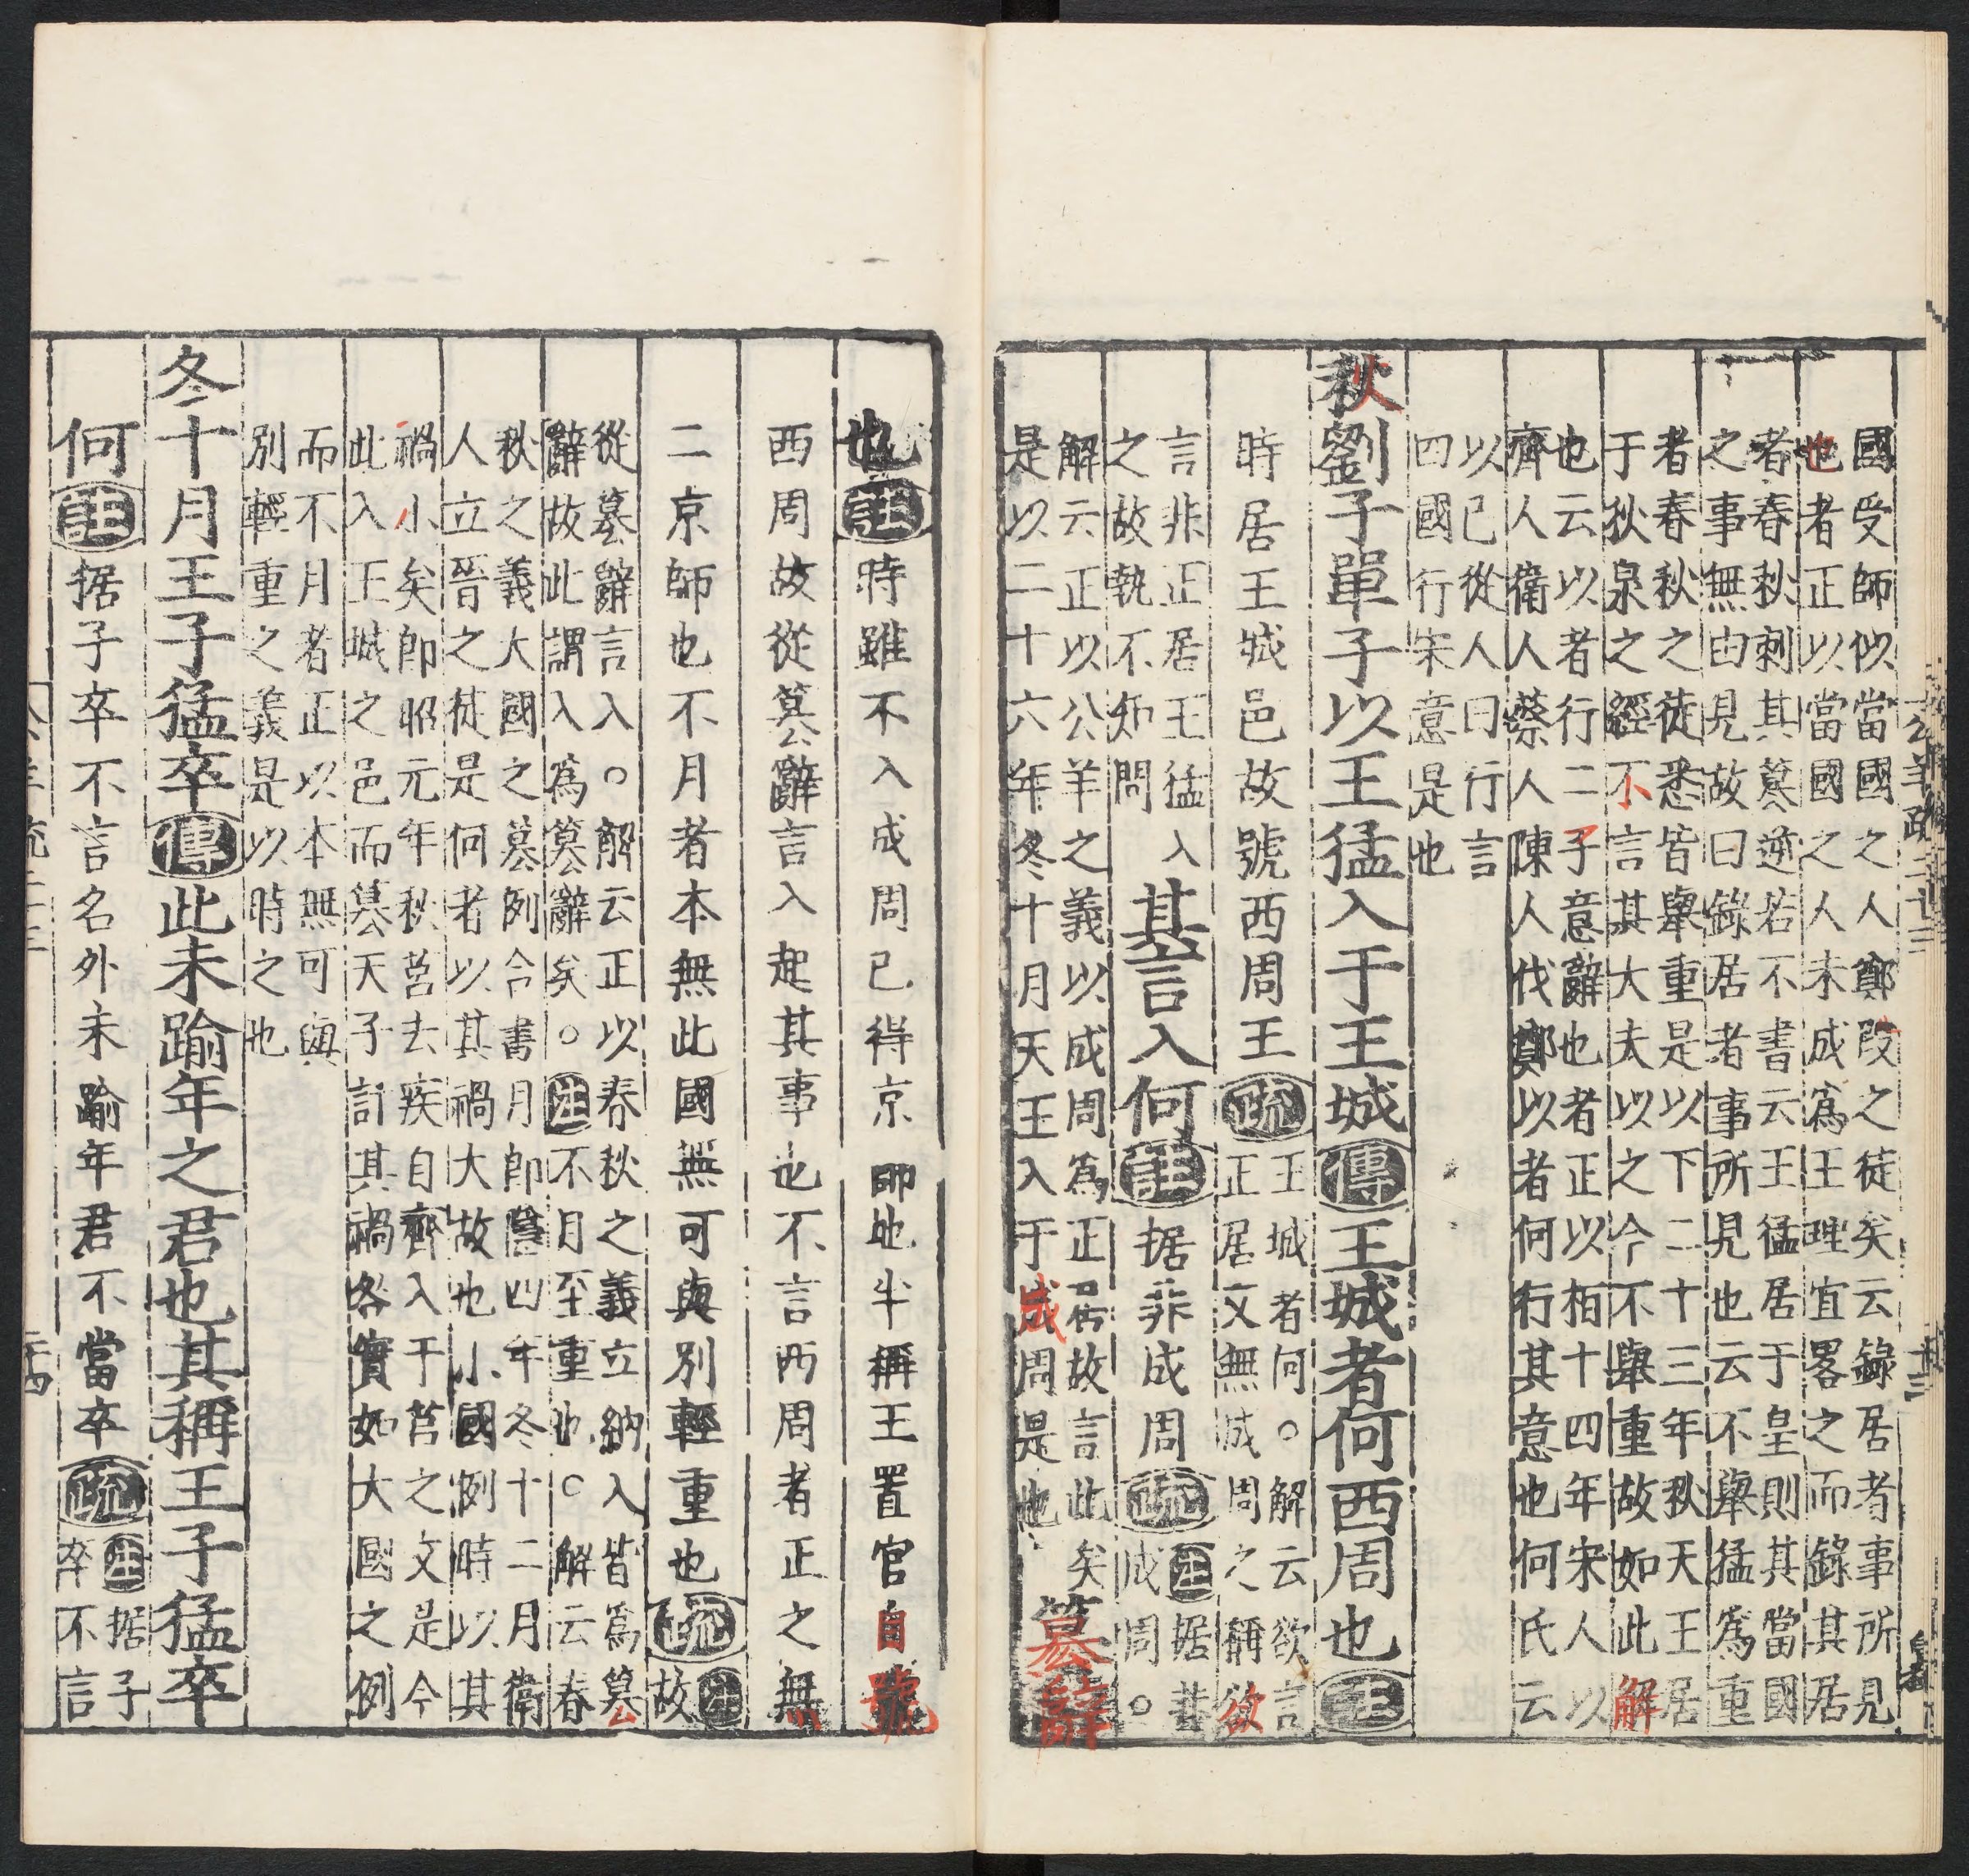 國受師似當國之人鄭段之徒矣云錄居者事所見
也者正以當國之人未成爲王理宜畧之而錄其居
者春秋刺其簒逆若不書云王猛居于皇則其當國
之事無由見故曰錄居者事所見也云不舉猛爲重
者春秋之徒悉皆舉重是以下二十三年秋天王居
于狄泉之經不言其大夫以之今不舉重故如此解
也云以者行二子意辭也者正以相十四年宋人以
齊人衛人蔡人陳人伐鄭以者何行其意也何氏云
以已從人曰行言
四國行宋意是也
秋劉子單子以王猛入于王城傳王城者何西周也註
時居王城邑故號西周王疏
王城者何○解云欲言
正居文無成周之稱欲
言非正居王猛入
之故執不知問
其言入何註据非成周疏
註据非
成周○
解云正以公羊之義以成周爲正居故言此矣
是以二十六年冬十月天王入于成周是也
簒辭
也註時雖不入成周已得京師地半稱王置官自號
西周故從簒辭言入起其事也不言西周者正之無
二京師也不月者本無此國無可與別輕重也疏
註
故
從簒辭言入○解云正以春秋之義立納入皆爲簒
辭故此謂入爲簒辭矣○註不月至重也○解云春
秋之義大國之簒例合書月即隱四年冬十二月衛
人立晉之徒是何者以其禍大故也小國例時以其
禍小矣即昭元年秋莒去疾自齊入于莒之文是今
此入王城之邑而簒天子計其禍咎實如大國之例
而不月者正以本無可與
別輕重之義是以時之也
冬十月王子猛卒傳此未踰年之君也其稱王子猛卒
何註据子卒不言名外未踰年君不當卒疏
註据子
卒不言